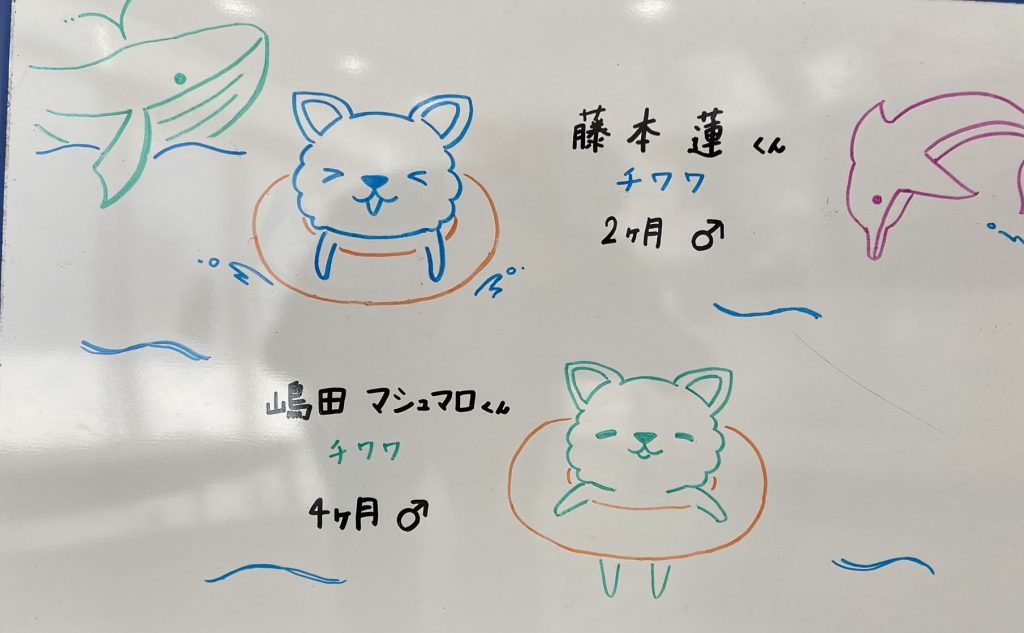 藤本 蓮 くん
チワワ
2ヶ月 ♂
嶋田 マシュマロくん
チワワ
4ヶ月 ♂